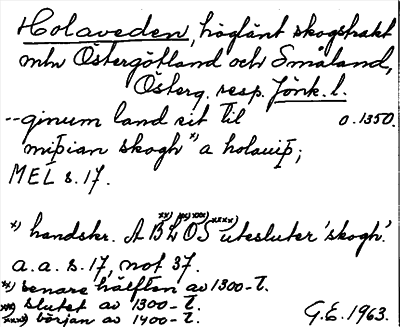 Holaveden, höglänt skogstrakt
mln Östergötland och Småland,
Österg. resp. Jönk. l.
--ginum land sit til o. 1350.
miþian skogh *) a holauiþ;
MEL s. 17.
*) handskr. A B **) L ***) O S ****) utesluter 'skogh'.
a.a. s. 17, not 37.
**) senare hälften av 1300-t.
***) slutet av 1300-t.
****) början av 1400-t. G.E. 1963.